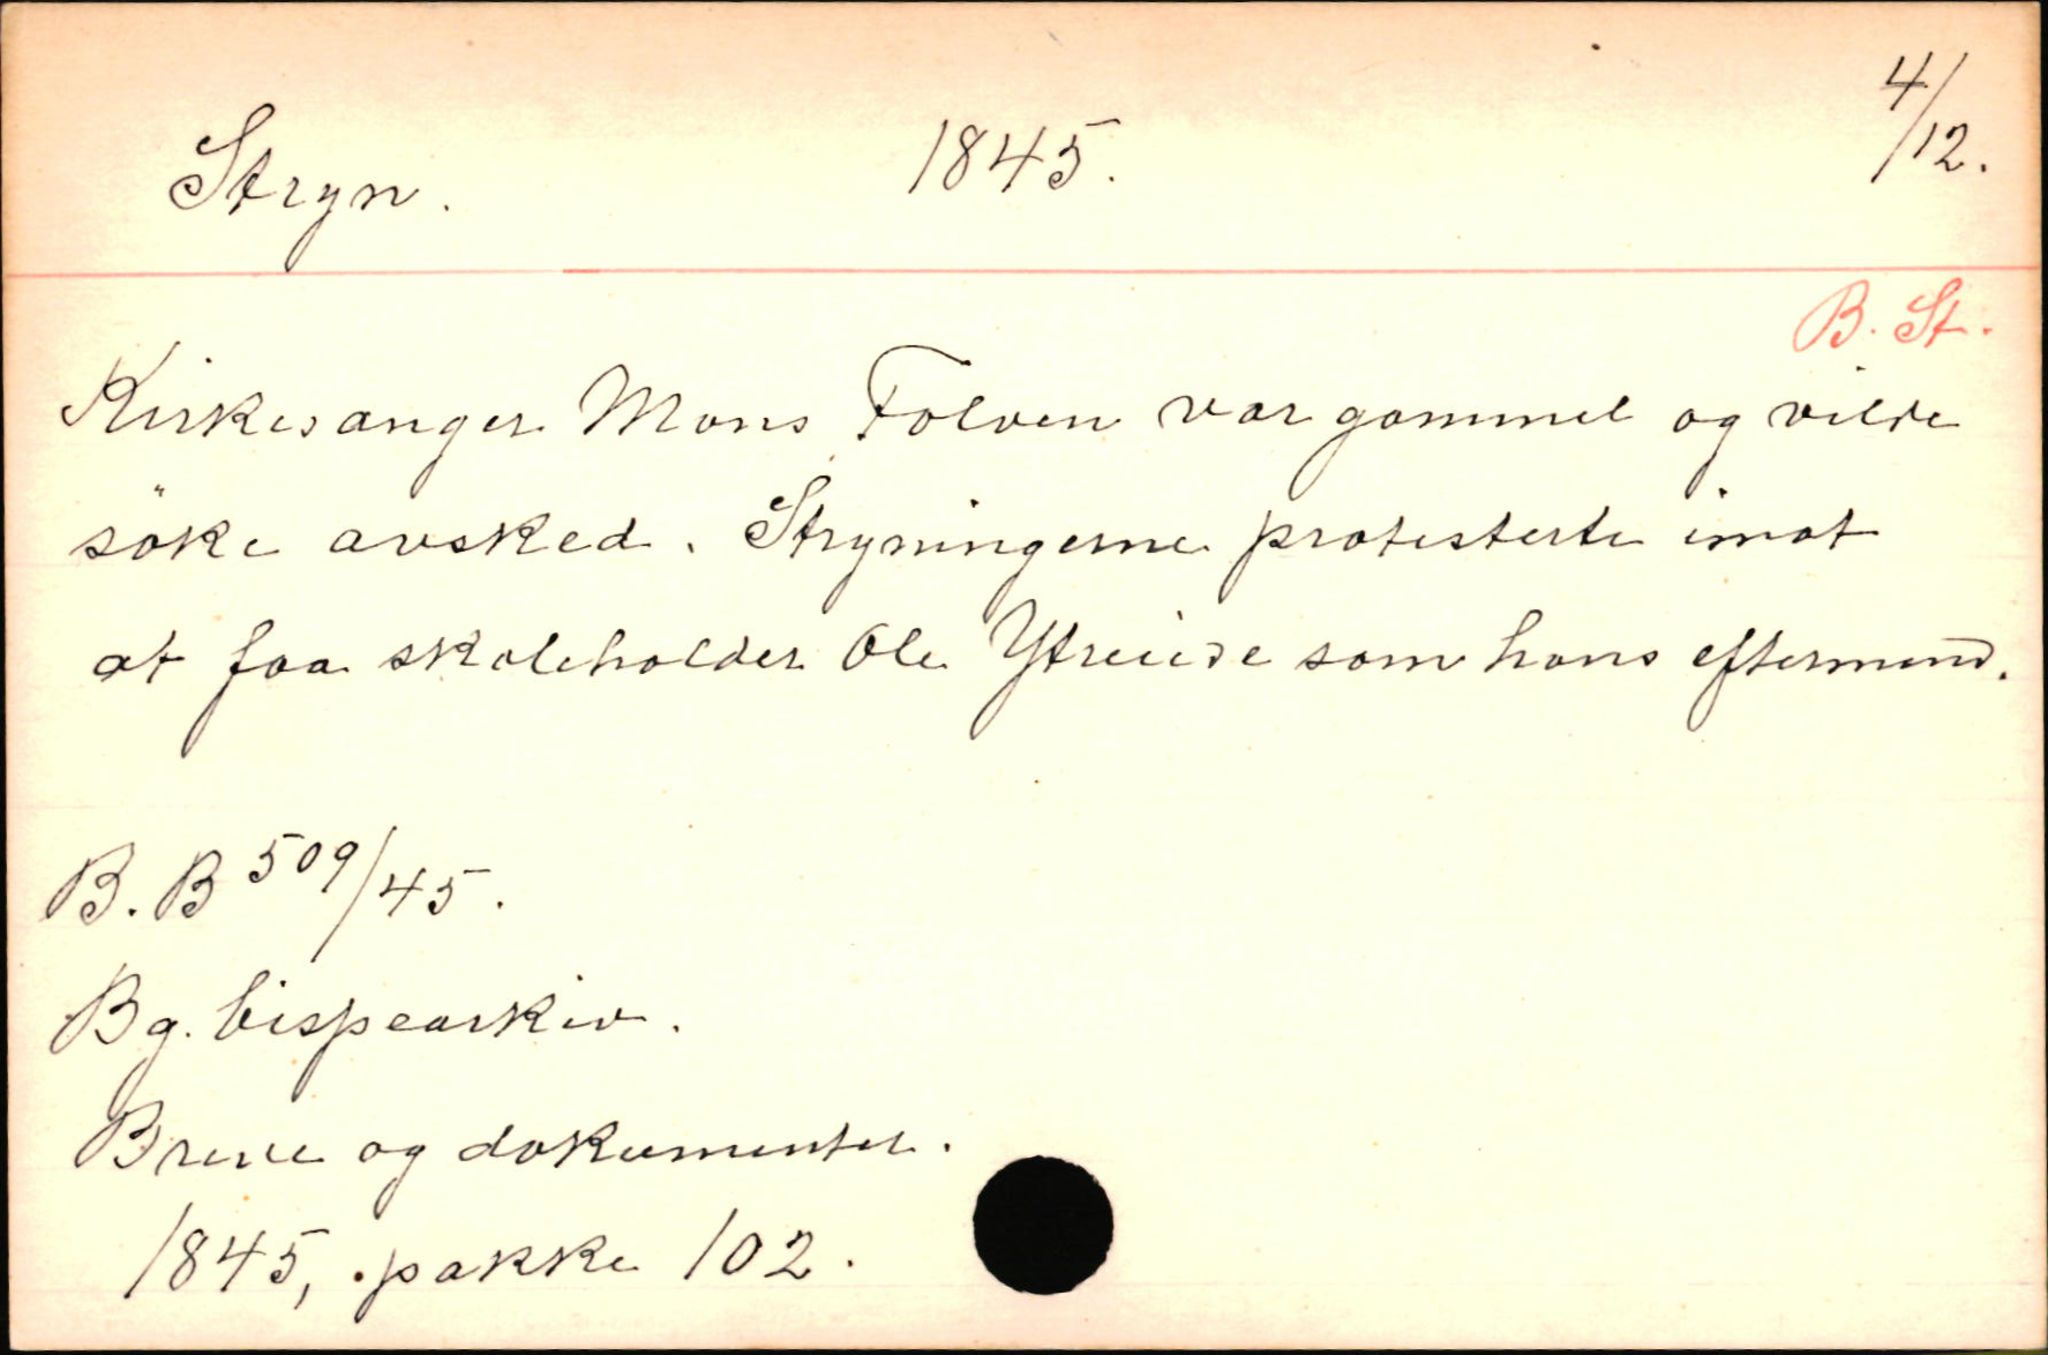 Stryn. 1845. 4/12.
B. St.
Kirkesanger Mons Folven var gammel og vilde
söke avsked. Stryningerne protesterte imot
at faa skoleholder Ole Ytreeide som hans eftermand.
B. B 509/45.
Bg. bispearkiv.
Breve og dokumenter.
1845, pakke 102.